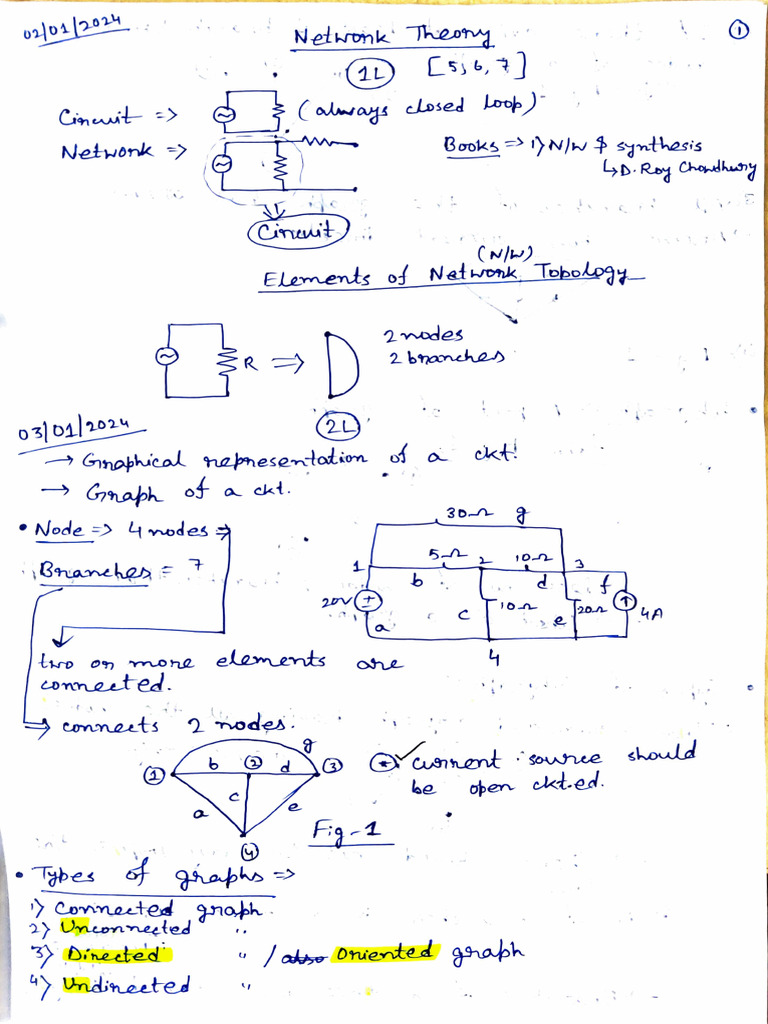 02/01/2024
Network Theory
1
1L [5, 6, 7]
Circuit => (always closed loop)
Network => Books => 1) N/W & synthesis
↳ D. Roy Chowdhury
Circuit
(N/W)
Elements of Network Topology
R => 2 nodes
2 branches
03/01/2024
2L
→ Graphical representation of a ckt.
→ Graph of a ckt.
• Node => 4 nodes =>
Branches = 7
30Ω g
1 5Ω 2 10Ω 3
b d f
20V + - c 10Ω e 20Ω 4A
a
4
two or more elements are
connected.
=> connects 2 nodes.
g
1 b 2 d 3
a c e
4
Fig-1
* ✓ current source should
be open ckt.ed.
• Types of graphs =>
1) Connected graph.
2) Unconnected "
3) Directed " / also Oriented graph
4) Undirected "